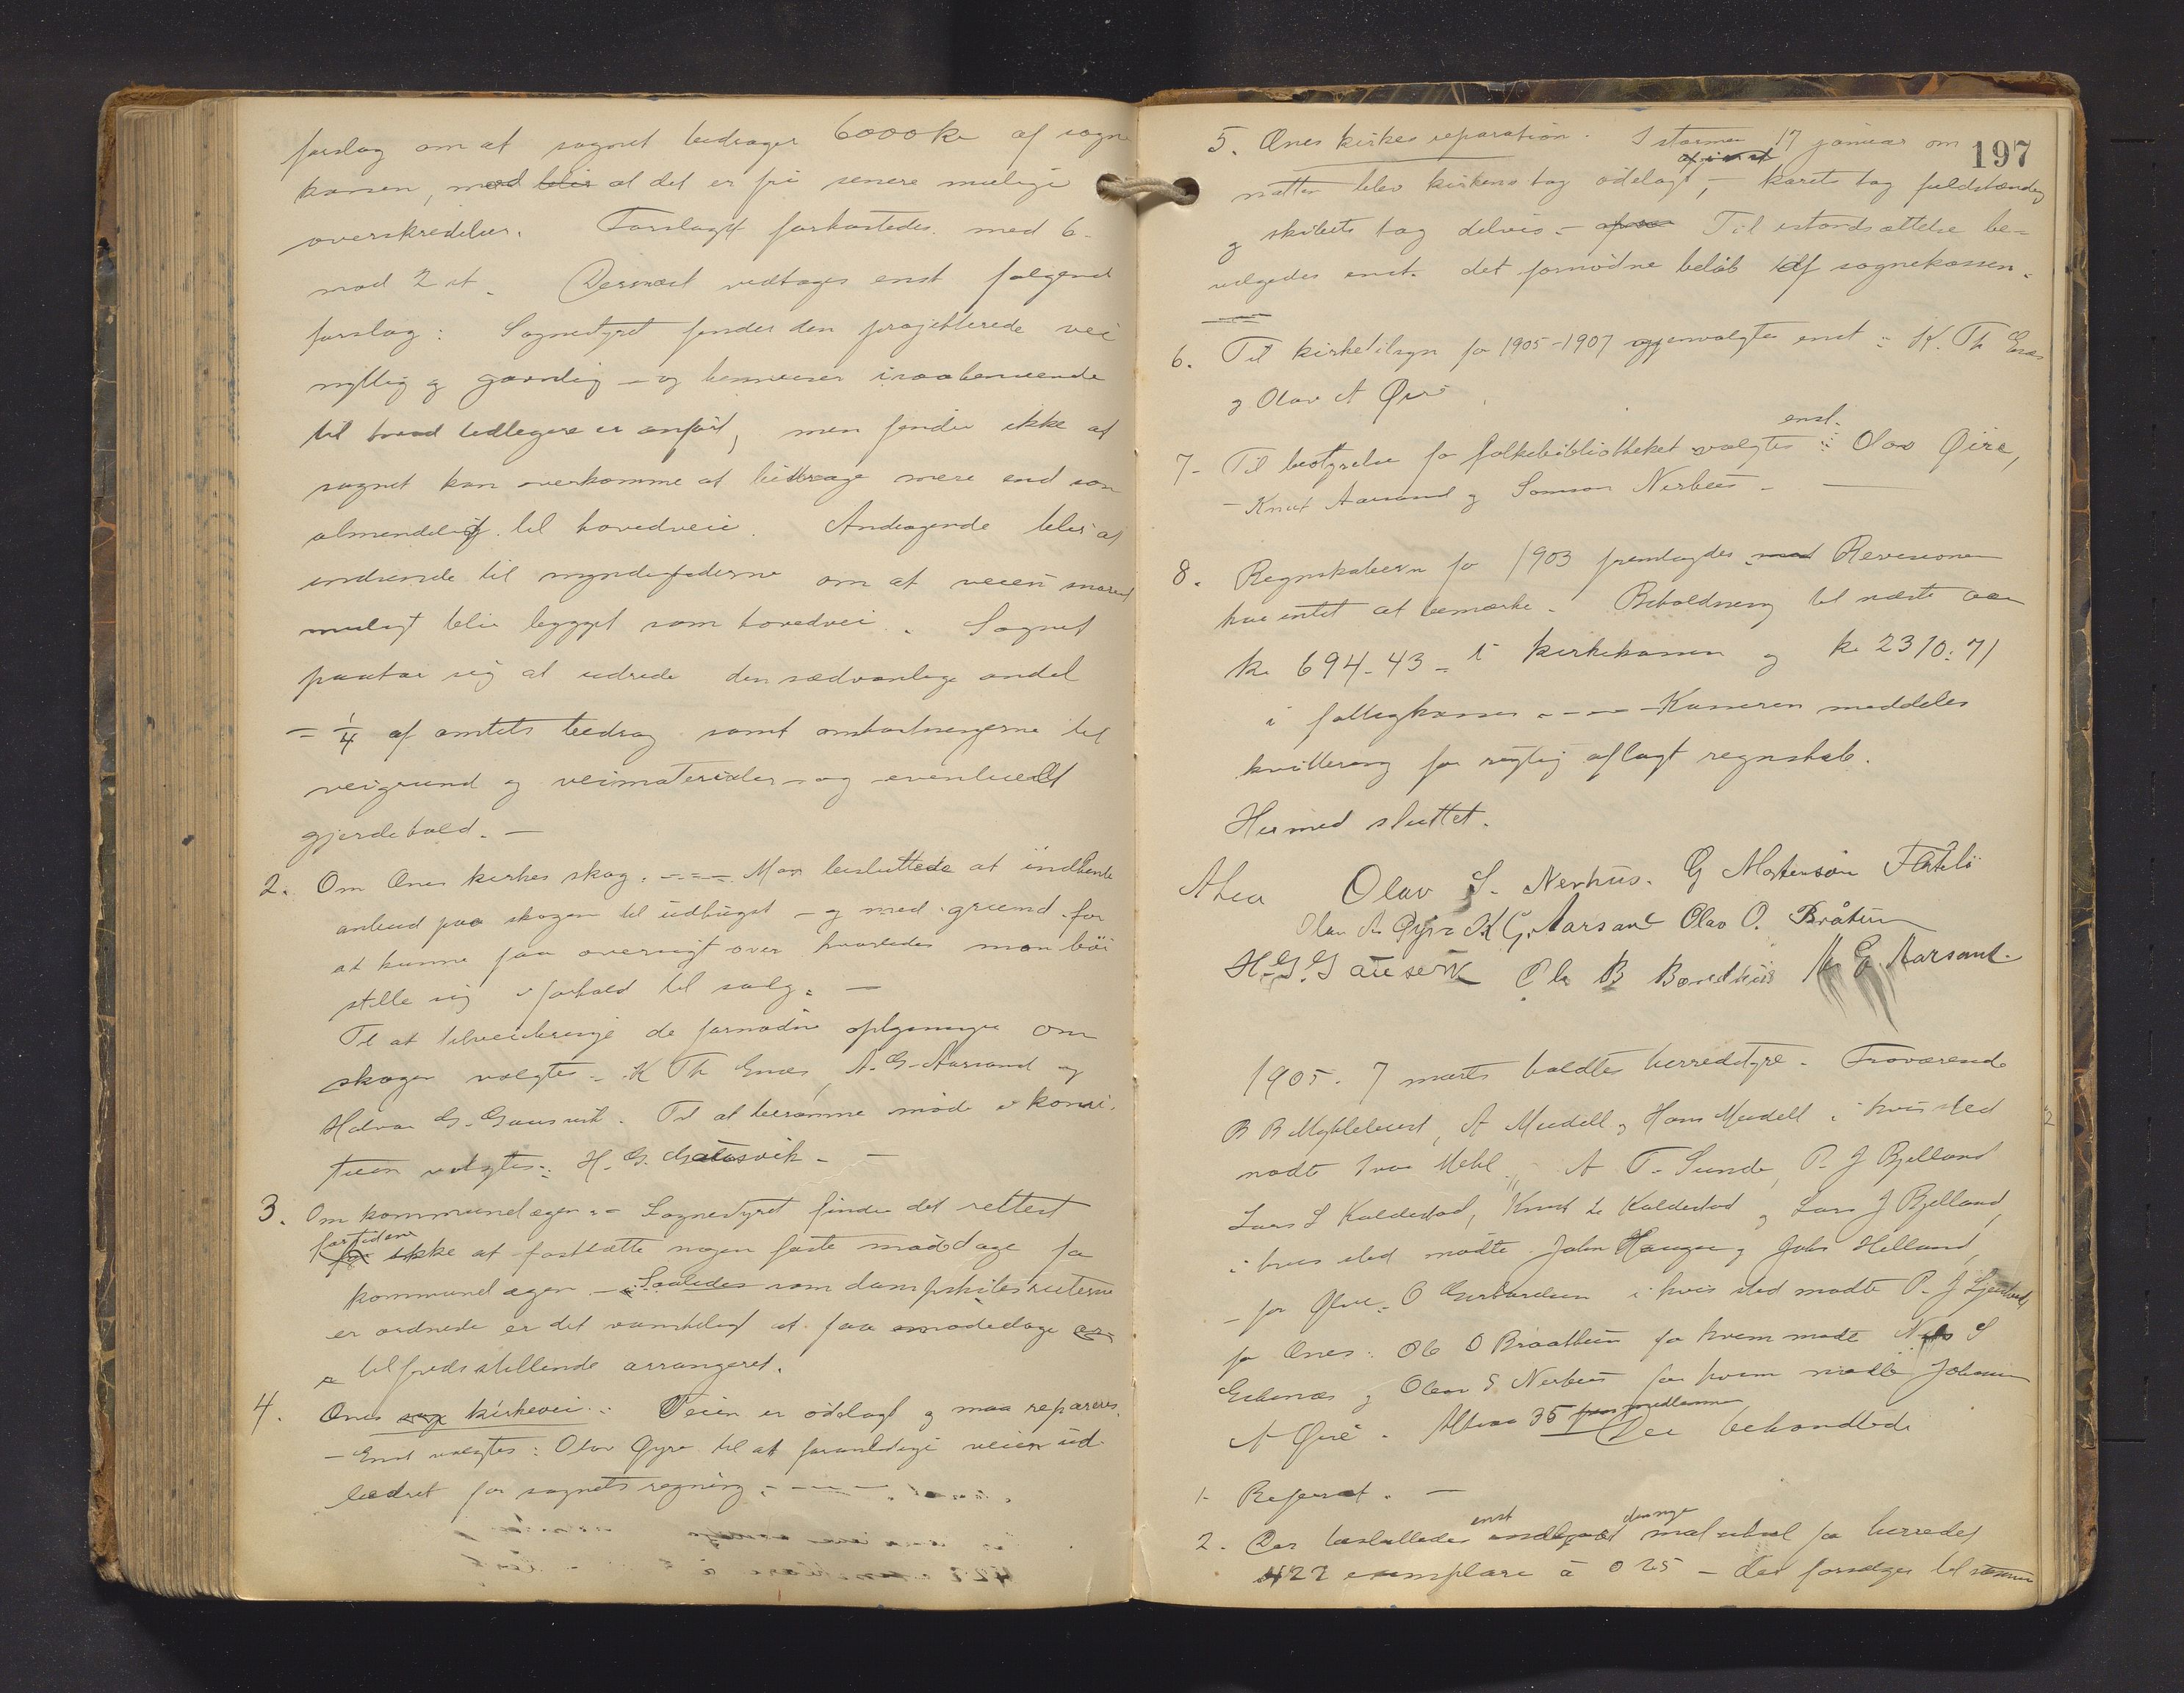 forslag om at sognet bidrager 6000 kr af sogne
kassen, mod at det er fri senere mulige
overskridelser. Forslaget forkastedes med 6
mod 2 st. Dernæst vedtages enst følgend
forslag: Sognestyret finder den projekterede vei
nyttig og gavnlig - og henviser i saahenseende
til hvad tidligere er anført, men finder ikke at
sognet kan overkomme at bidrage mere end som
almindelig til hovedveie. Andragende blir at
indsende til myndighederne om at veien snarest
muligt blir bygget som hovedvei. Sognet
paatar sig at udrede den sædvanlige andel
- 1/4 af amtets bidrag samt omkostningerne til
veigrund og veimaterialer - og eventuelt
gjerdehold. -
2. Om Ænes kirkes skog. - Man besluttede at indhente
anbud paa skogen til udhugst - og med grund for
at kunne faa oversigt over hvorledes man bør
stille sig i forhold til salg. -
Til at tilveiebringe de fornødne oplysninger om
skogen valgtes - K Th Enæs, A. G. Aarsand og
Halvor G. Gausvik. Til at beramme møde i komi-
teen valgtes: H. G. Gausvik - -
3. Om kommunelægen - Sognestyret finder det rettest
fortiden
ikke at fastsætte nogen faste mødedage for
kommunelægen - Saaledes som dampskibsruterne
er ordnede er det vanskeligt at faa mødedage
tilfredsstillende arrangeret.
4. Ænes kirkevei: Veien er ødelagt og maa repareres.
- Enst valgtes: Olav Øyre til at foranledige veien ud-
bedret for sognets regning. - - -
197
5. Ænes kirkes reparation. I stormen 17 januar om
natten blev kirkens tag ødelagt, - korets tag fuldstændig
og skibets tag delvis - Til istandsættelse be-
vilgedes enst. det fornødne beløb af sognekassen.
6. Til kirketilsyn for 1905-1907 gjenvalgtes enst: K. Th Enæs
og Olav A Øire
enst.
7- Til bestyrelse for folkebibliotheket valgtes: Olav Øire,
- Knut Aarsand og Samson Nerhus -
8. Regnskaberne for 1903 fremlagdes Revisionen
har intet at bemærke. Beholdning til næste aar
kr 694-43 - i kirkekassen og kr 2310.71
i fattigkassen - - - Kasseren meddeles
kvittering for rigtig aflagt regnskab.
Hermed sluttet.
A Lea Olav S. Nerhus. G Mortenson
Olav A Øyre K G. Aarsand Olav O. Bråtun
H. G. Gausvik Ole B Bondhus A G. Aarsand.
1905. 7 marts holdtes herredstyre - Fraværende
B B Myklebust, A Mudell og Hans Mudell i hvis sted
mødte Ivar Mehl, A T. Sunde, P. J Bjelland
Lars L Kaldestad, Knut L Kaldestad og Lars J Bjelland,
i hvis sted mødte John Haugen og John Helland,
- for Ølve. O Gerhardsen i hvis sted mødte P. J
for Ænes: Ole O Braathun for hvem mødte Nils S
og Olav S Nerhus for hvem mødte Johannes
A Øire. Altsaa 35
Der behandledes
1- Referat. -
enst
2. Der besluttedes for herredet
422 exemplarer à 0 25 - der forsøges til